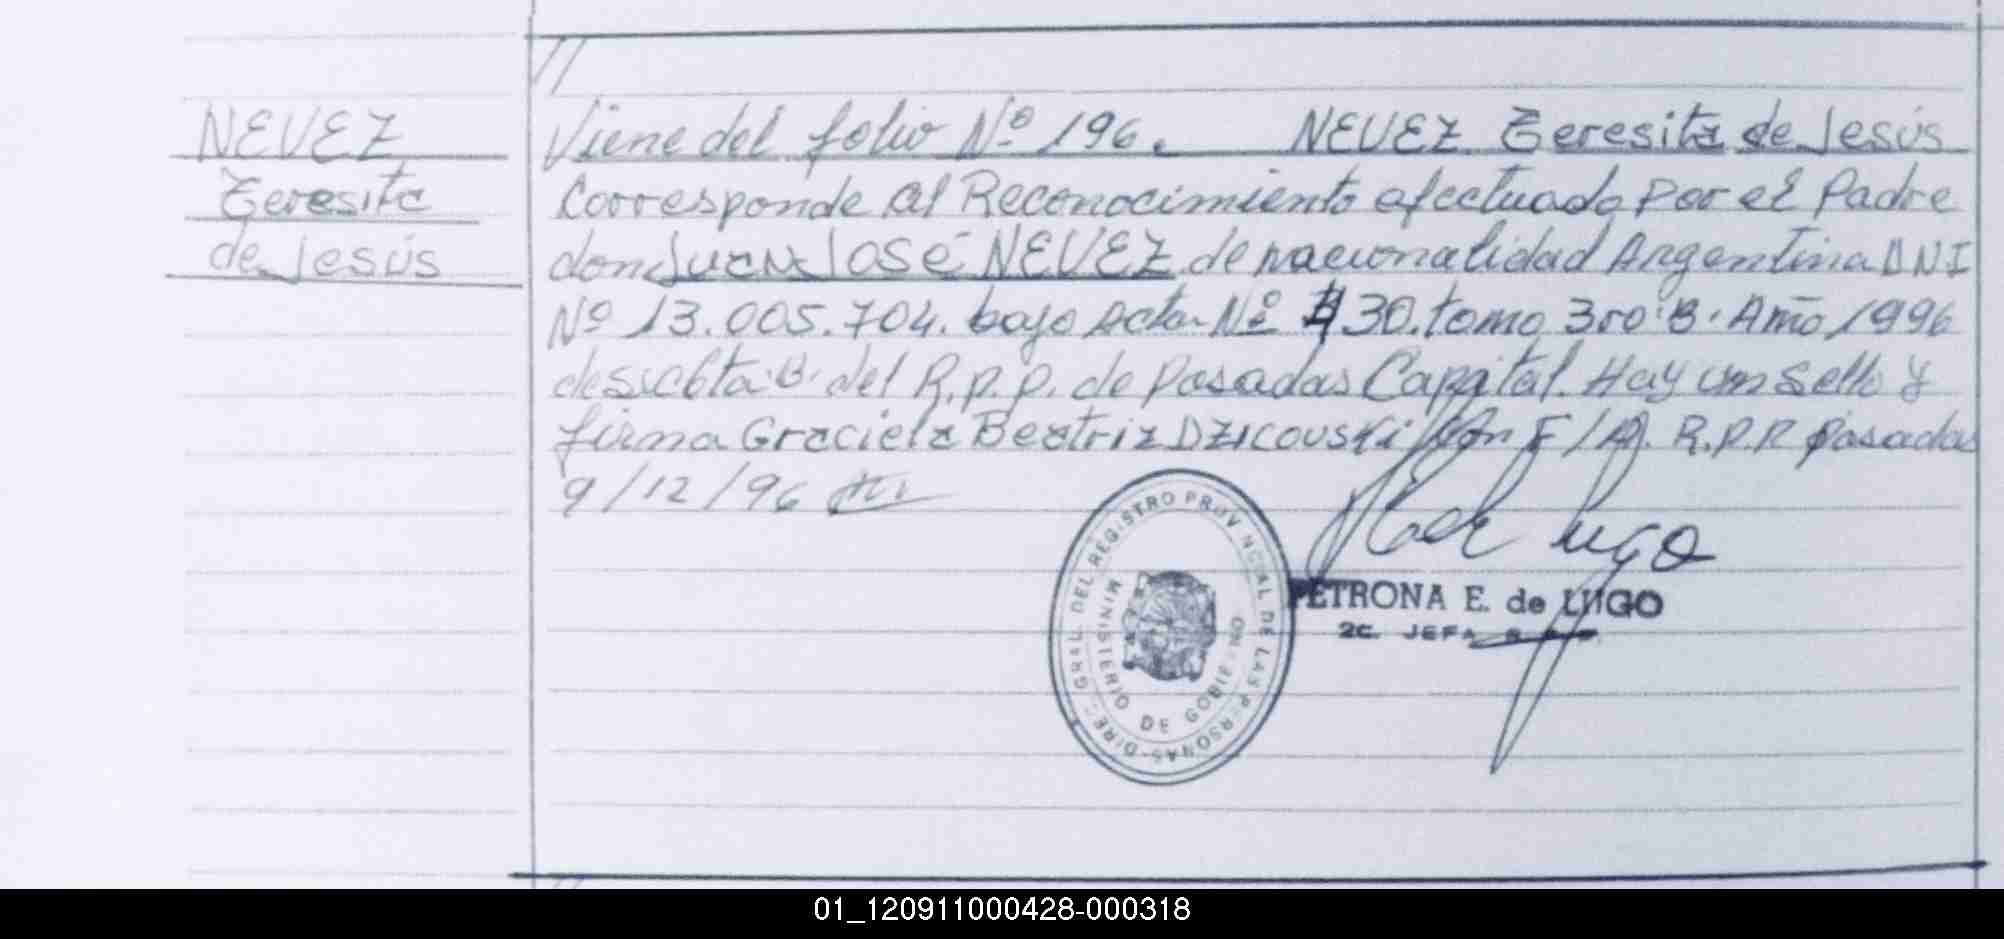 NEVEZ
Teresita
de Jesús
Viene del folio Nº 196. NEVEZ Teresita de Jesús
Corresponde al Reconocimiento efectuado por el Padre
don Juan José NEVEZ de nacionalidad Argentina DNI
Nº 13.005.704. bajo acta Nº 30. tomo 3ro B. Año 1996
del R.p.p. de Posadas Capital. Hay un sello y
firma Graciela Beatriz Dzicovski R.P.P. Posadas
9/12/96
DIREC. GRAL. DEL REGISTRO PROVINCIAL DE LAS PERSONAS
MINISTERIO DE GOBIERNO
Lugo
PETRONA E. de LUGO
JEFA
01_120911000428-000318